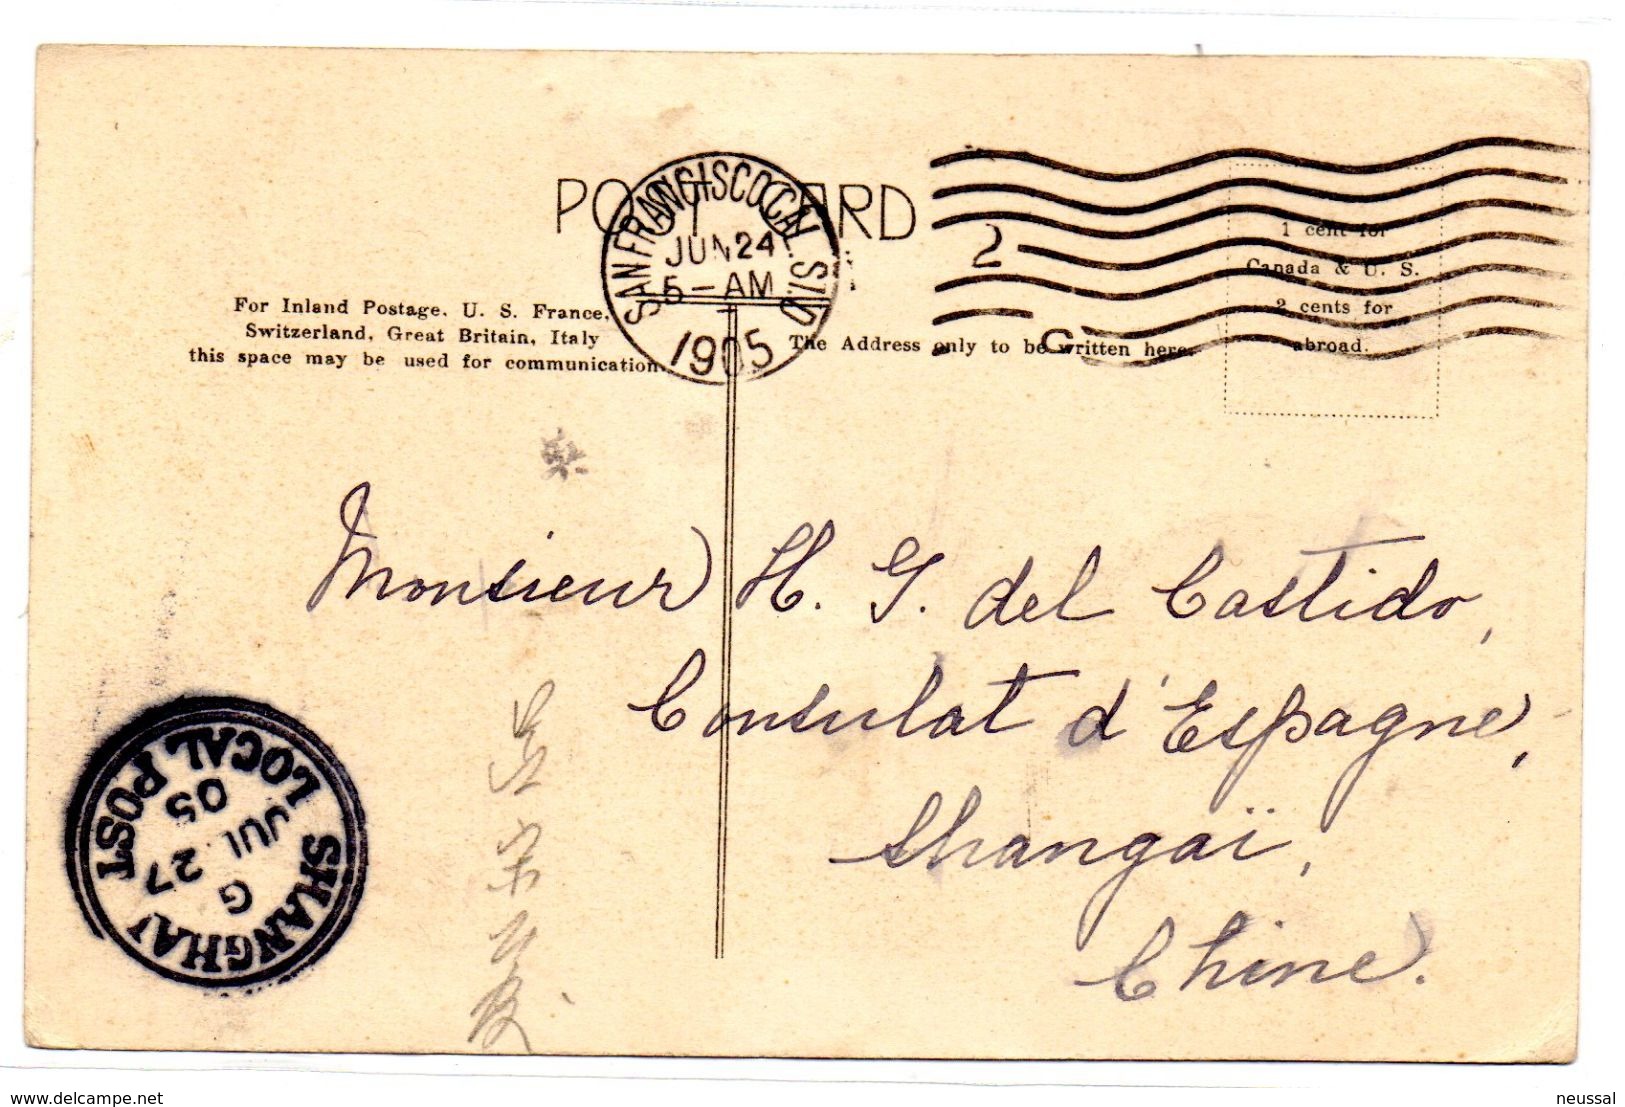 POST CARD
SAN FRANCISCO CAL. STA. D
JUN 24
5-AM
1905
2
C
1 cent for
Canada & U. S.
2 cents for
abroad.
For Inland Postage, U. S. France,
Switzerland, Great Britain, Italy
this space may be used for communication.
The Address only to be written here.
Monsieur H. G. del Castido,
Consulat d'Espagne,
Shangaï,
Chine.
SHANGHAI
LOCAL POST
G
27
JUL
05
www.delcampe.net
neussal